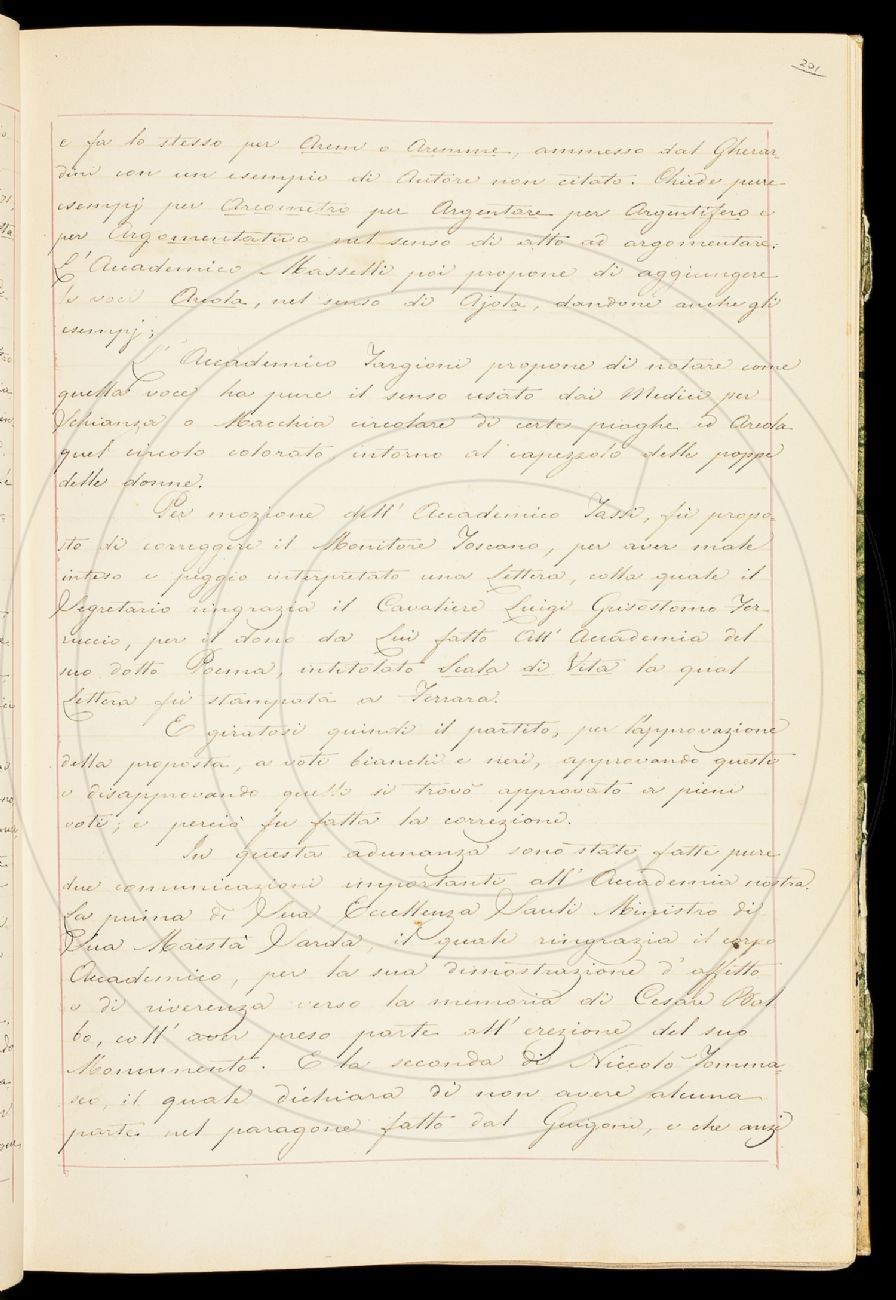 201
e fa lo stesso per Arem o Aremme, ammesso dal Gherar-
dini con un esempio di Autore non citato. Chiede pure
esempj per Areometro per Argentare per Argentifero e
per Argomentativo nel senso di atto ad argomentare.
L'Accademico Masselli poi propone di aggiungere
le voci Areola, nel senso di Ajola, dandone anche gli
esempj;
L'Accademico Targioni propone di notare come
quella voce ha pure il senso usato dai Medici per
Schianza o Macchia circolare di certe piaghe ed Areola
quel circolo colorato intorno al capezzolo delle poppe
delle donne.
Per mozione dell'Accademico Tassi, fù propo-
sto di correggere il Monitore Toscano, per aver male
inteso e peggio interpretato una Lettera, colla quale il
Segretario ringrazia il Cavaliere Luigi Grisostomo Fer-
ruccio, per il dono da Lui fatto All'Accademia del
suo dotto Poema, intitolato Scala di Vita la qual
Lettera fù stampata a Ferrara.
E giratosi quindi il partito, per l'approvazione
della proposta, a voti bianchi e neri, approvando questi
e disapprovando quelli si trovò approvato a pieni
voti; e perciò fu fatta la correzione.
In questa adunanza sono state fatte pure
due comunicazioni importanti all'Accademia nostra.
La prima di Sua Eccellenza Sauli Ministro di
Sua Maestà Sarda, il quale ringrazia il corpo
Accademico, per la sua dimostrazione d'affetto
e di riverenza verso la memoria di Cesare Bal
bo, coll'aver preso parte all'erezione del suo
Monumento. E la seconda di Niccolò Tomma-
seo, il quale dichiara di non avere alcuna
parte nel paragone fatto dal Guigoni, e che anzi